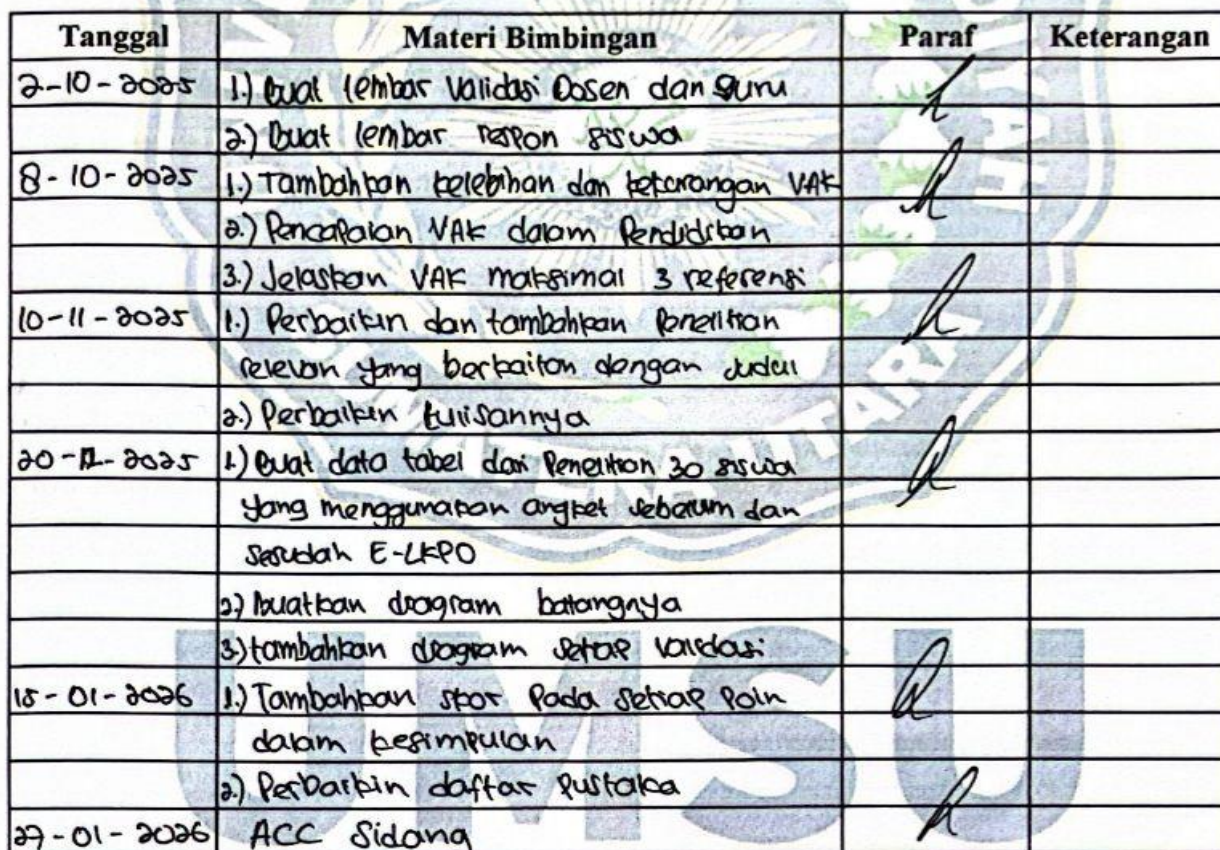 Tanggal Materi Bimbingan Paraf Keterangan
2-10-2025 1.) Buat lembar Validasi Dosen dan Guru
2.) Buat lembar respon siswa
8-10-2025 1.) Tambahkan kelebihan dan keterangan VAK
2.) Pencapaian VAK dalam Pendidikan
3.) Jelaskan VAK maksimal 3 referensi
10-11-2025 1.) Perbaikin dan tambahkan Penelitian
relevan yang berkaitan dengan Judul
2.) Perbaikin tulisannya
20-12-2025 1.) Buat data tabel dari Penelitian 30 siswa
yang menggunakan angket sebelum dan
sesudah E-LKPD
2.) Buatkan diagram batangnya
3.) tambahkan diagram setiap validasi
15-01-2026 1.) Tambahkan skor Pada Setiap Poin
dalam kesimpulan
2.) Perbaikin daftar Pustaka
27-01-2026 ACC Sidang
SUMATERA UTARA
UMSU